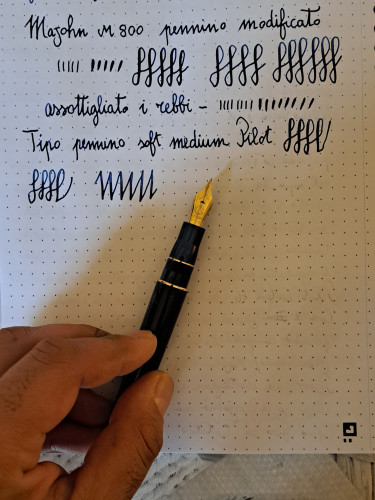 Majohn M 800 pennino modificato
assottigliato i rebbi -
Tipo pennino soft medium Pilot